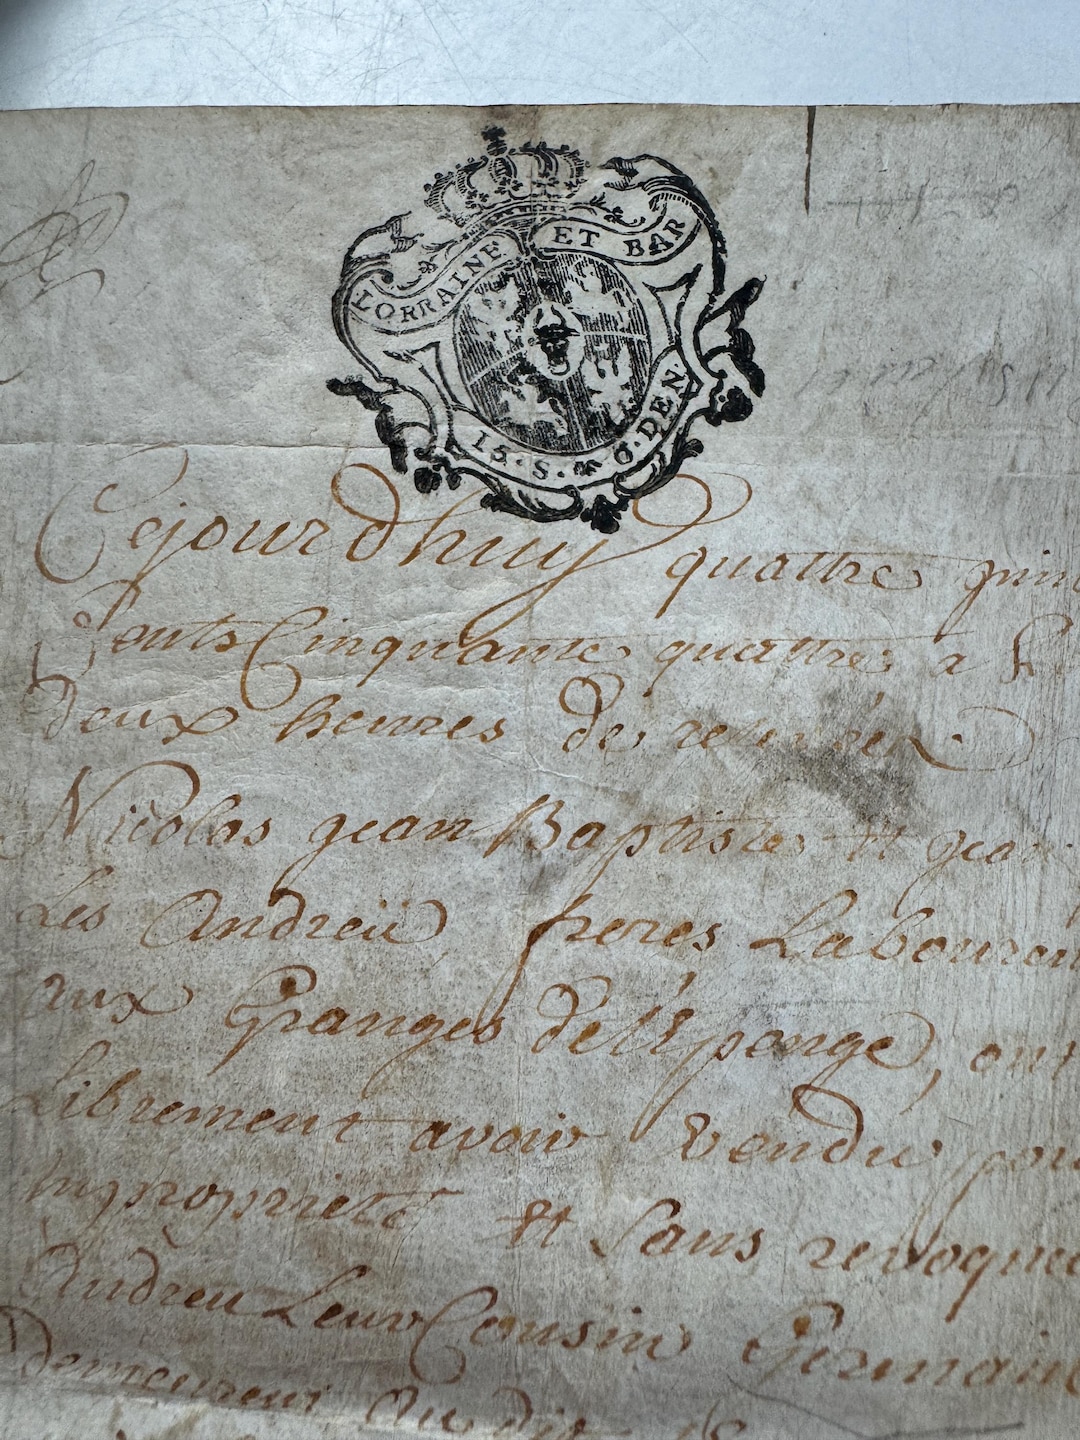 LORRAINE ET BAR
15. S. 6. DEN.
Cejourdhuy quattre juin
Cents Cinquante quattre a
deux heures de relevéer
Nicolas jean Baptiste et jean
Les Andreü freres Laboureu
aux Granges del'Eponge, ont
Librement avoir vendu pour
En proprieté et sans revoque
Andreu Leur Cousin Germain
Demeurent Au dit